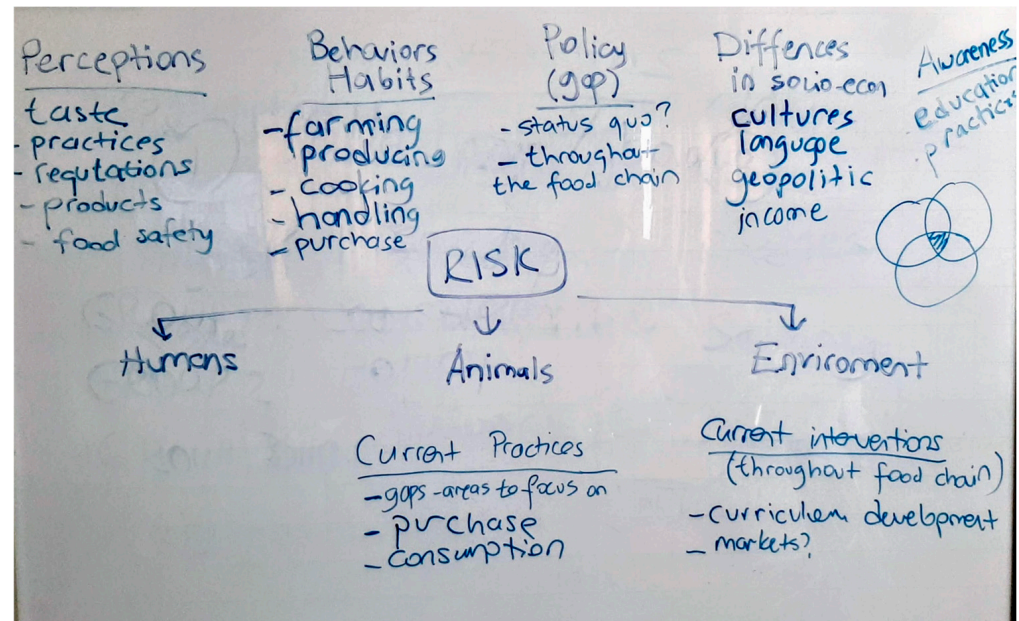 Perceptions
taste
- practices
- reputations
- products
- food safety
Behaviors
Habits
- farming
producing
- cooking
- handling
- purchase
Policy
(gap)
- status quo?
- throughout
the food chain
Diffences
in socio-econ
cultures
language
geopolitic
income
Awareness
education
. practices
RISK
Humans
Animals
Enviroment
Current Practices
- gaps - areas to focus on
- purchase
- consumption
Current interventions
(throughout food chain)
- curriculum development
- markets?